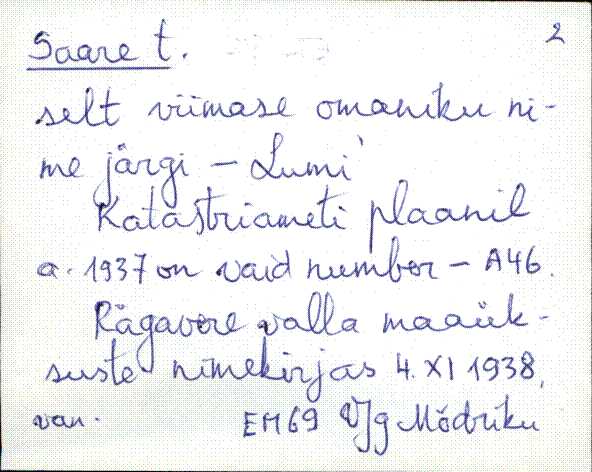 Saare t. 2
selt viimase omaniku ni-
me järgi – Lumi
Katastriameti plaanil
a. 1937 on vaid number – A46.
Rägavere valla maaük-
suste nimekirjas 4. XI 1938,
van. EM69 VJg Mõdriku